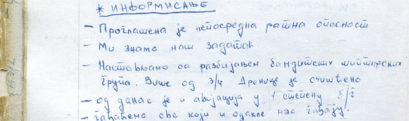 * ИНФОРМИСАЊЕ
– Проглашена је непосредна ратна опасност
– Ми знамо наш задатак
– Настављамо са разбијањем бандитских шиптарских
група. Више од 3/4 Дренице је очишћено
– од данас је и авијација у 1 степену б/г
– гађаћемо све који и одакле нас гађају.